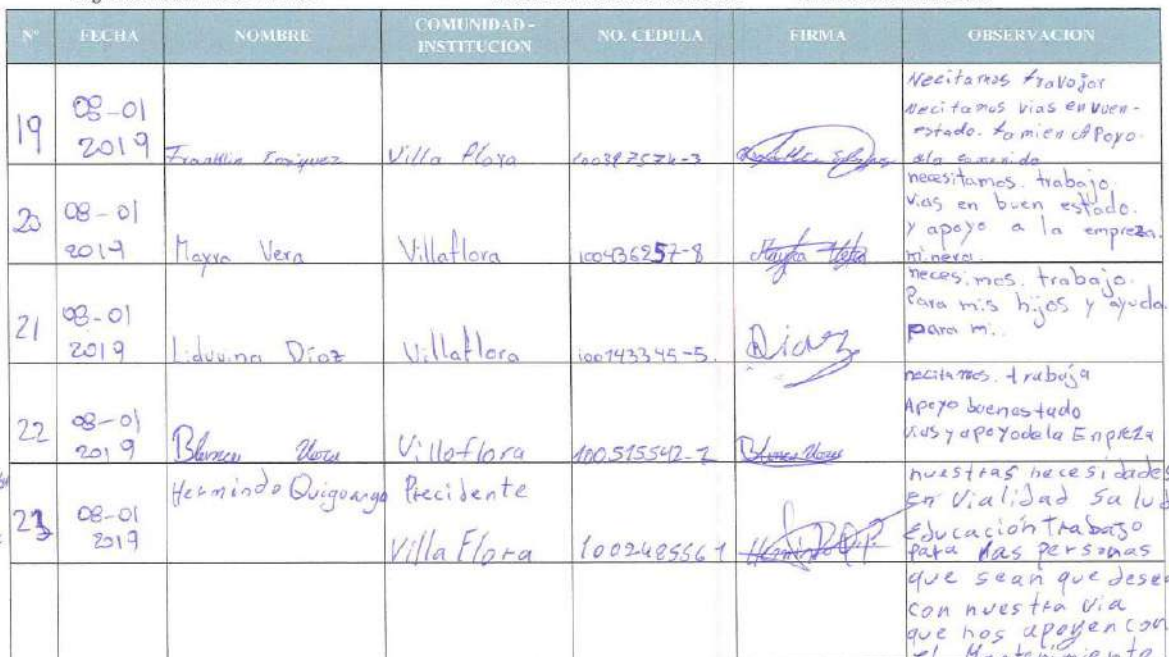 N° FECHA NOMBRE COMUNIDAD - INSTITUCION NO. CEDULA FIRMA OBSERVACION
19 08-01 2019 Franklin Villa Flora
Necitamos travajar
Necitamos vias en vuen-
estado. tamien apoyo.
20 08-01 2019 Mayra Vera Villaflora 100436257-8 Mayra Vera
necesitamos. trabajo.
vias en buen estado.
y apoyo a la empreza.
minera.
21 08-01 2019 Liduvina Díaz Villaflora 100143345-5. Diaz
necesimos. trabajo.
Para mis hijos y ayuda
para mi.
22 08-01 2019 Blanca Villaflora Blanca
necitamos. trabaja
Apoyo buenestado
vias y apoyo de la Enpreza
23 08-01 2019 Hermindo Quiguango Precidente Villa Flora 1002485561
nuestras necesidades
En Vialidad Salud
Educación trabajo
para las personas
que sean que dese
con nuestra via
que nos apoyen con
el Mantenimiento